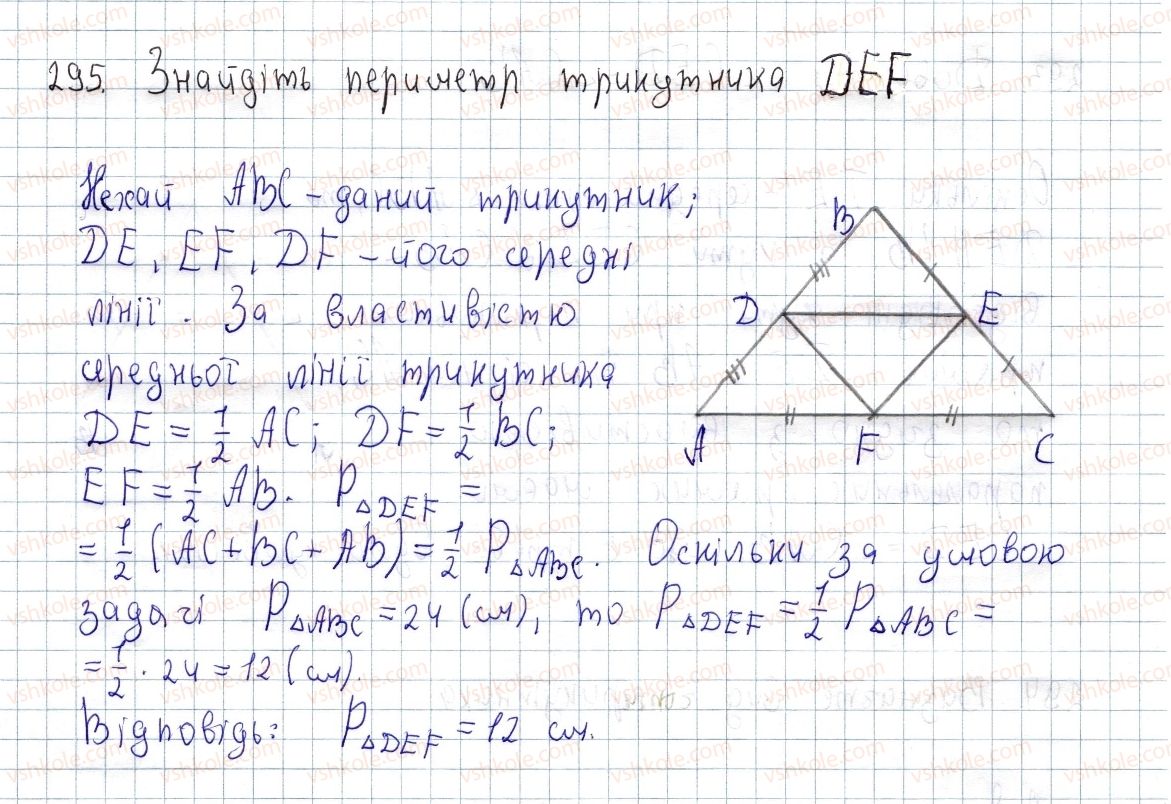 295. Знайдіть периметр трикутника DEF
Нехай ABC – даний трикутник;
DE, EF, DF – його середні
лінії. За властивістю
середньої лінії трикутника
DE = 1/2 AC; DF = 1/2 BC;
EF = 1/2 AB. P△DEF =
= 1/2 (AC + BC + AB) = 1/2 P△ABC. Оскільки за умовою
задачі P△ABC = 24 (см), то P△DEF = 1/2 P△ABC =
= 1/2 · 24 = 12 (см).
Відповідь: P△DEF = 12 см.
B
D E
A F C
vshkole.com